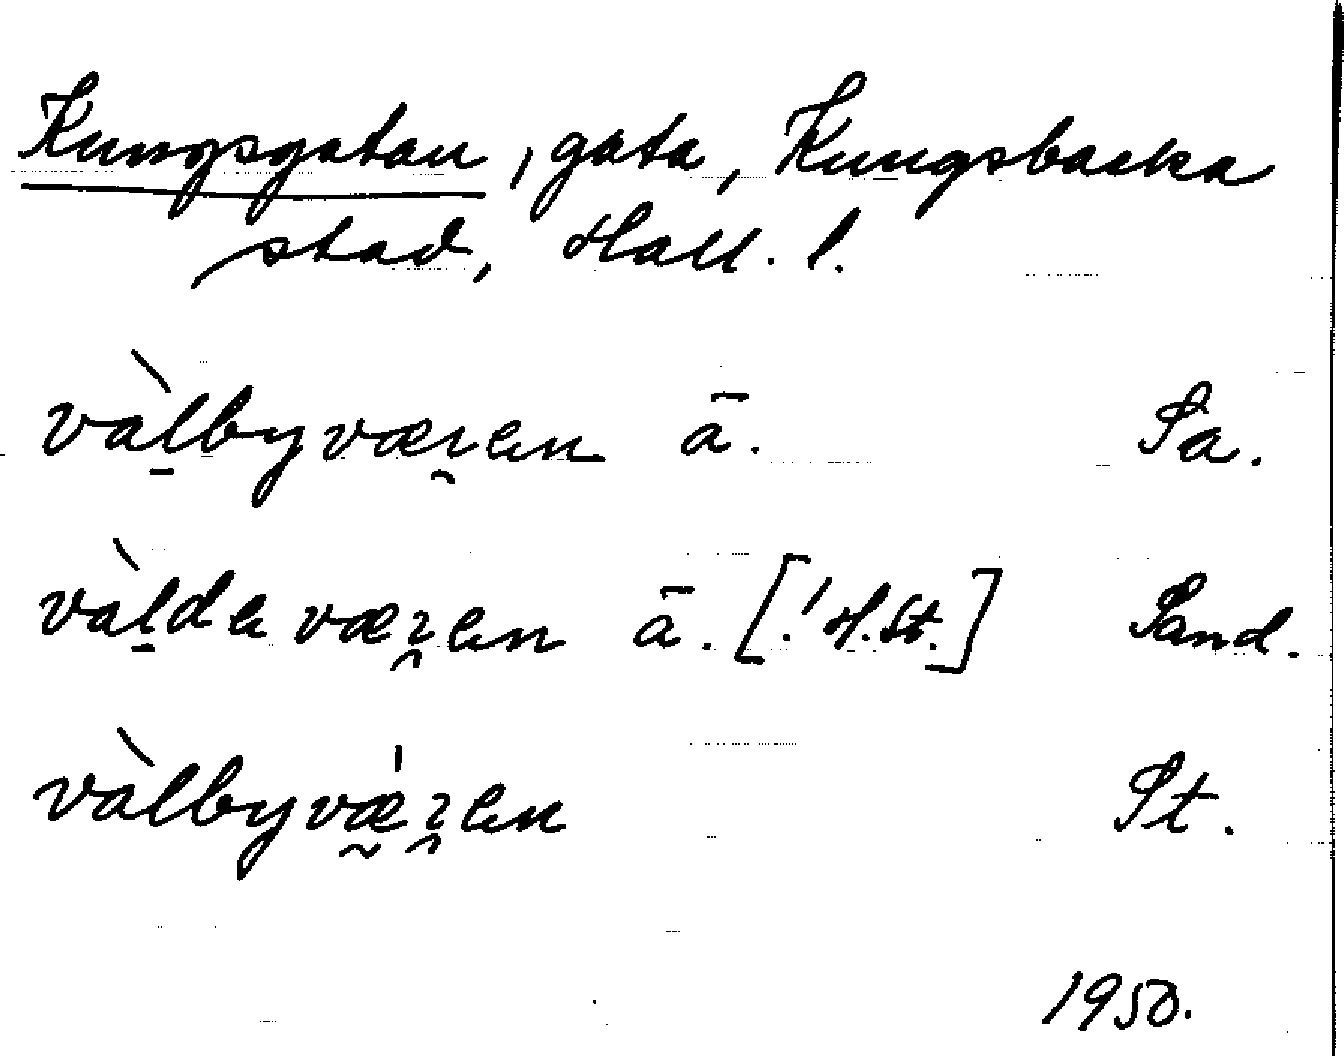 Kungsgatan, gata, Kungsbacka
stad, Hall. l.
vàl̠byvæɿ̯en ā. Sa.
vàl̠devæɿ̯en ā. [! H.St.] Sand.
vàlbyvæ̰ɿ̯en St.
1950.